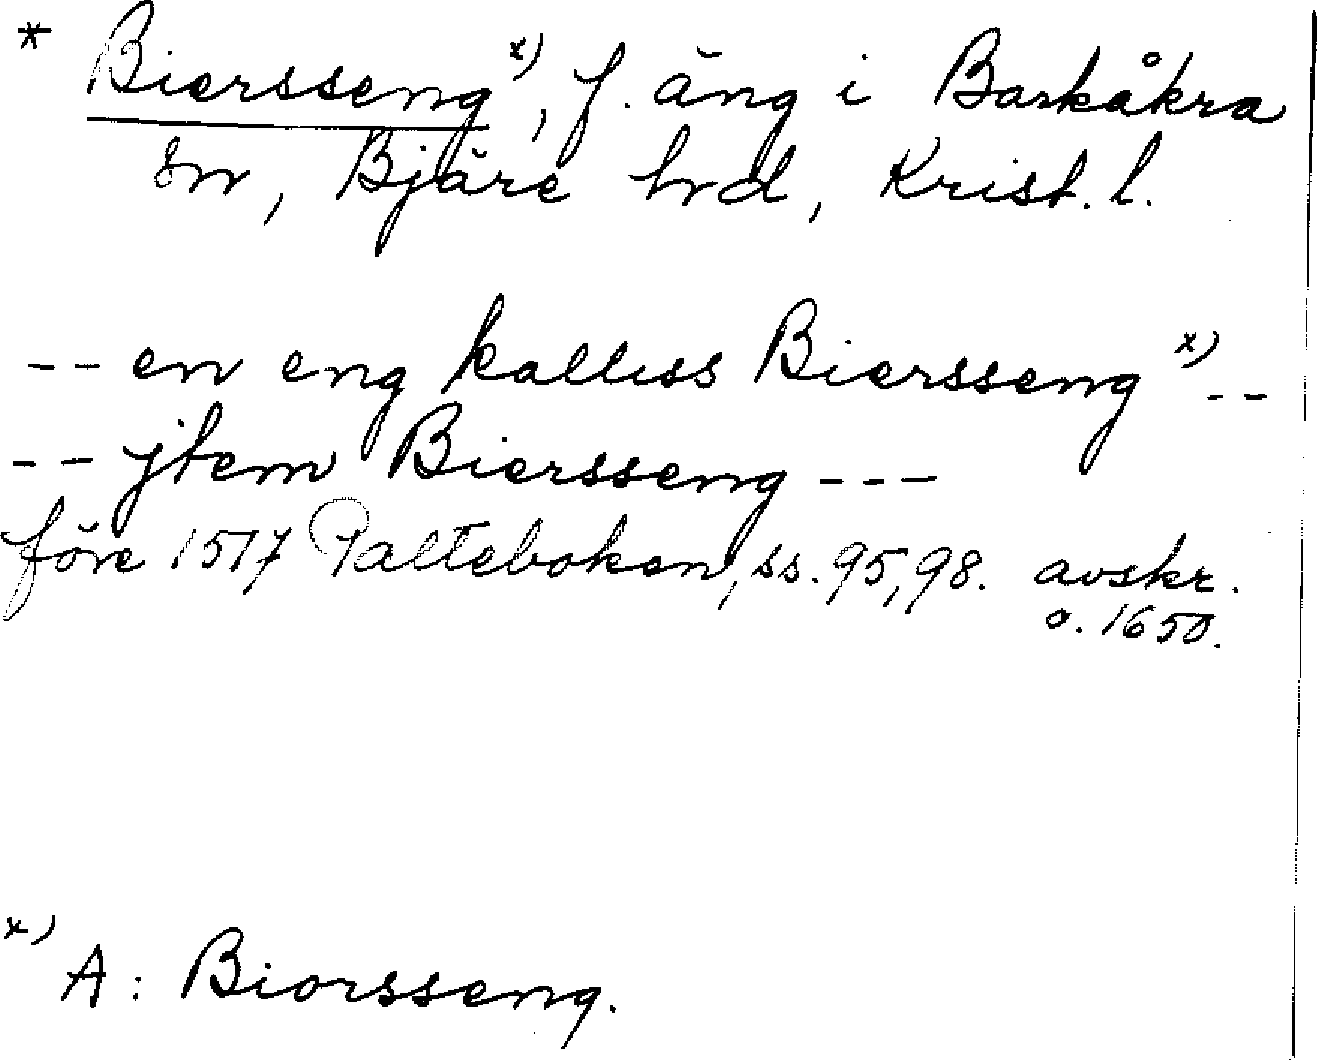 * Biersseng x), f. äng i Barkåkra
sn, Bjäre hd, Krist. l.
-- en eng kalless Biersseng x) --
-- jtem Biersseng ---
före 1517 Palteboken, ss. 95, 98. avskr.
o. 1650.
x) A: Biorsseng.